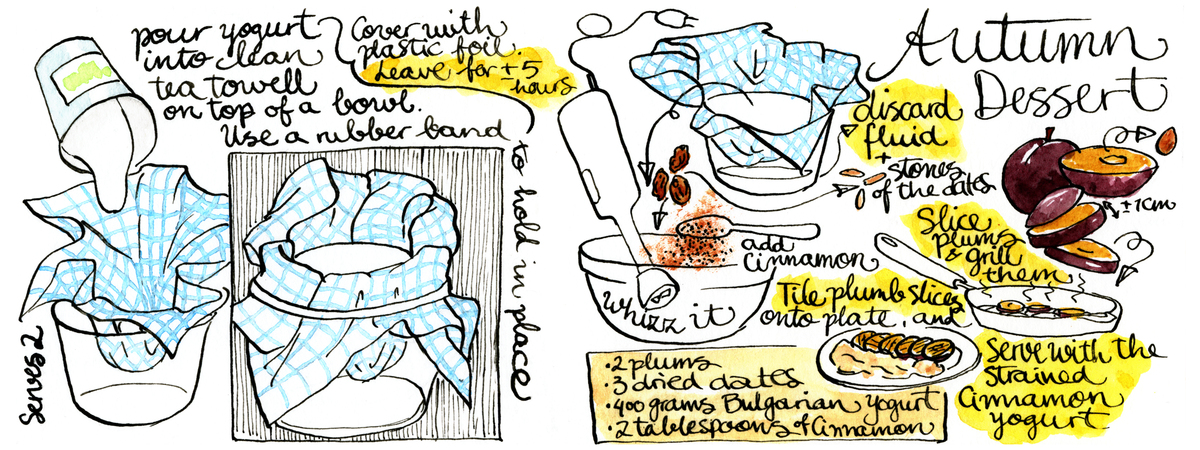 pour yogurt
into clean
tea towell
on top of a bowl.
Use a rubber band
to hold in place
Cover with
plastic foil.
Leave for ±5
hours
serves 2
Autumn
Dessert
discard
fluid
+
stones
of the dates
±1cm
Slice
plums
& grill
them
add
Cinnamon
whizz it
Tile plumb slices
onto plate, and
Serve with the
strained
Cinnamon
yogurt
·2 plums
·3 dried dates
·400 grams Bulgarian yogurt
·2 tablespoons of Cinnamon